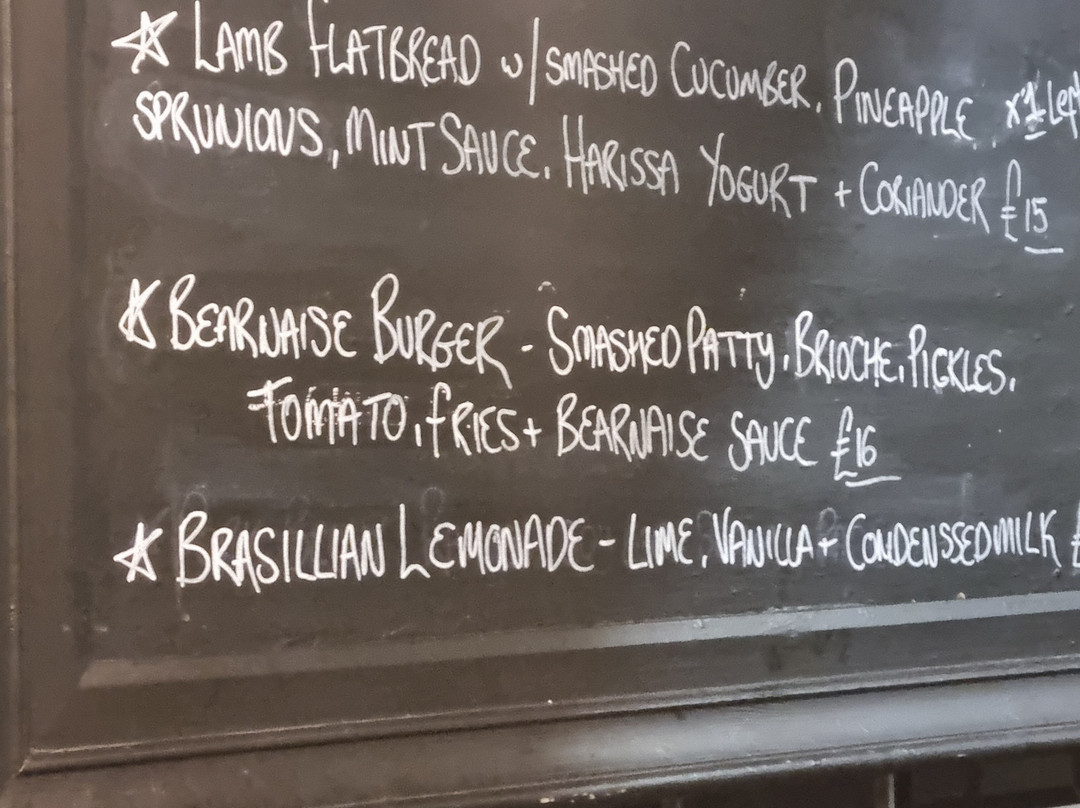 ☆ LAMB FLATBREAD w/ SMASHED CUCUMBER, PINEAPPLE, x1 Left
SPRUNIONS, MINT SAUCE, HARISSA YOGURT + CORIANDER £15
☆ BEARNAISE BURGER - SMASHED PATTY, BRIOCHE, PICKLES,
TOMATO, FRIES + BEARNAISE SAUCE £16
☆ BRASILLIAN LEMONADE - LIME, VANILLA + CONDENSSED MILK £